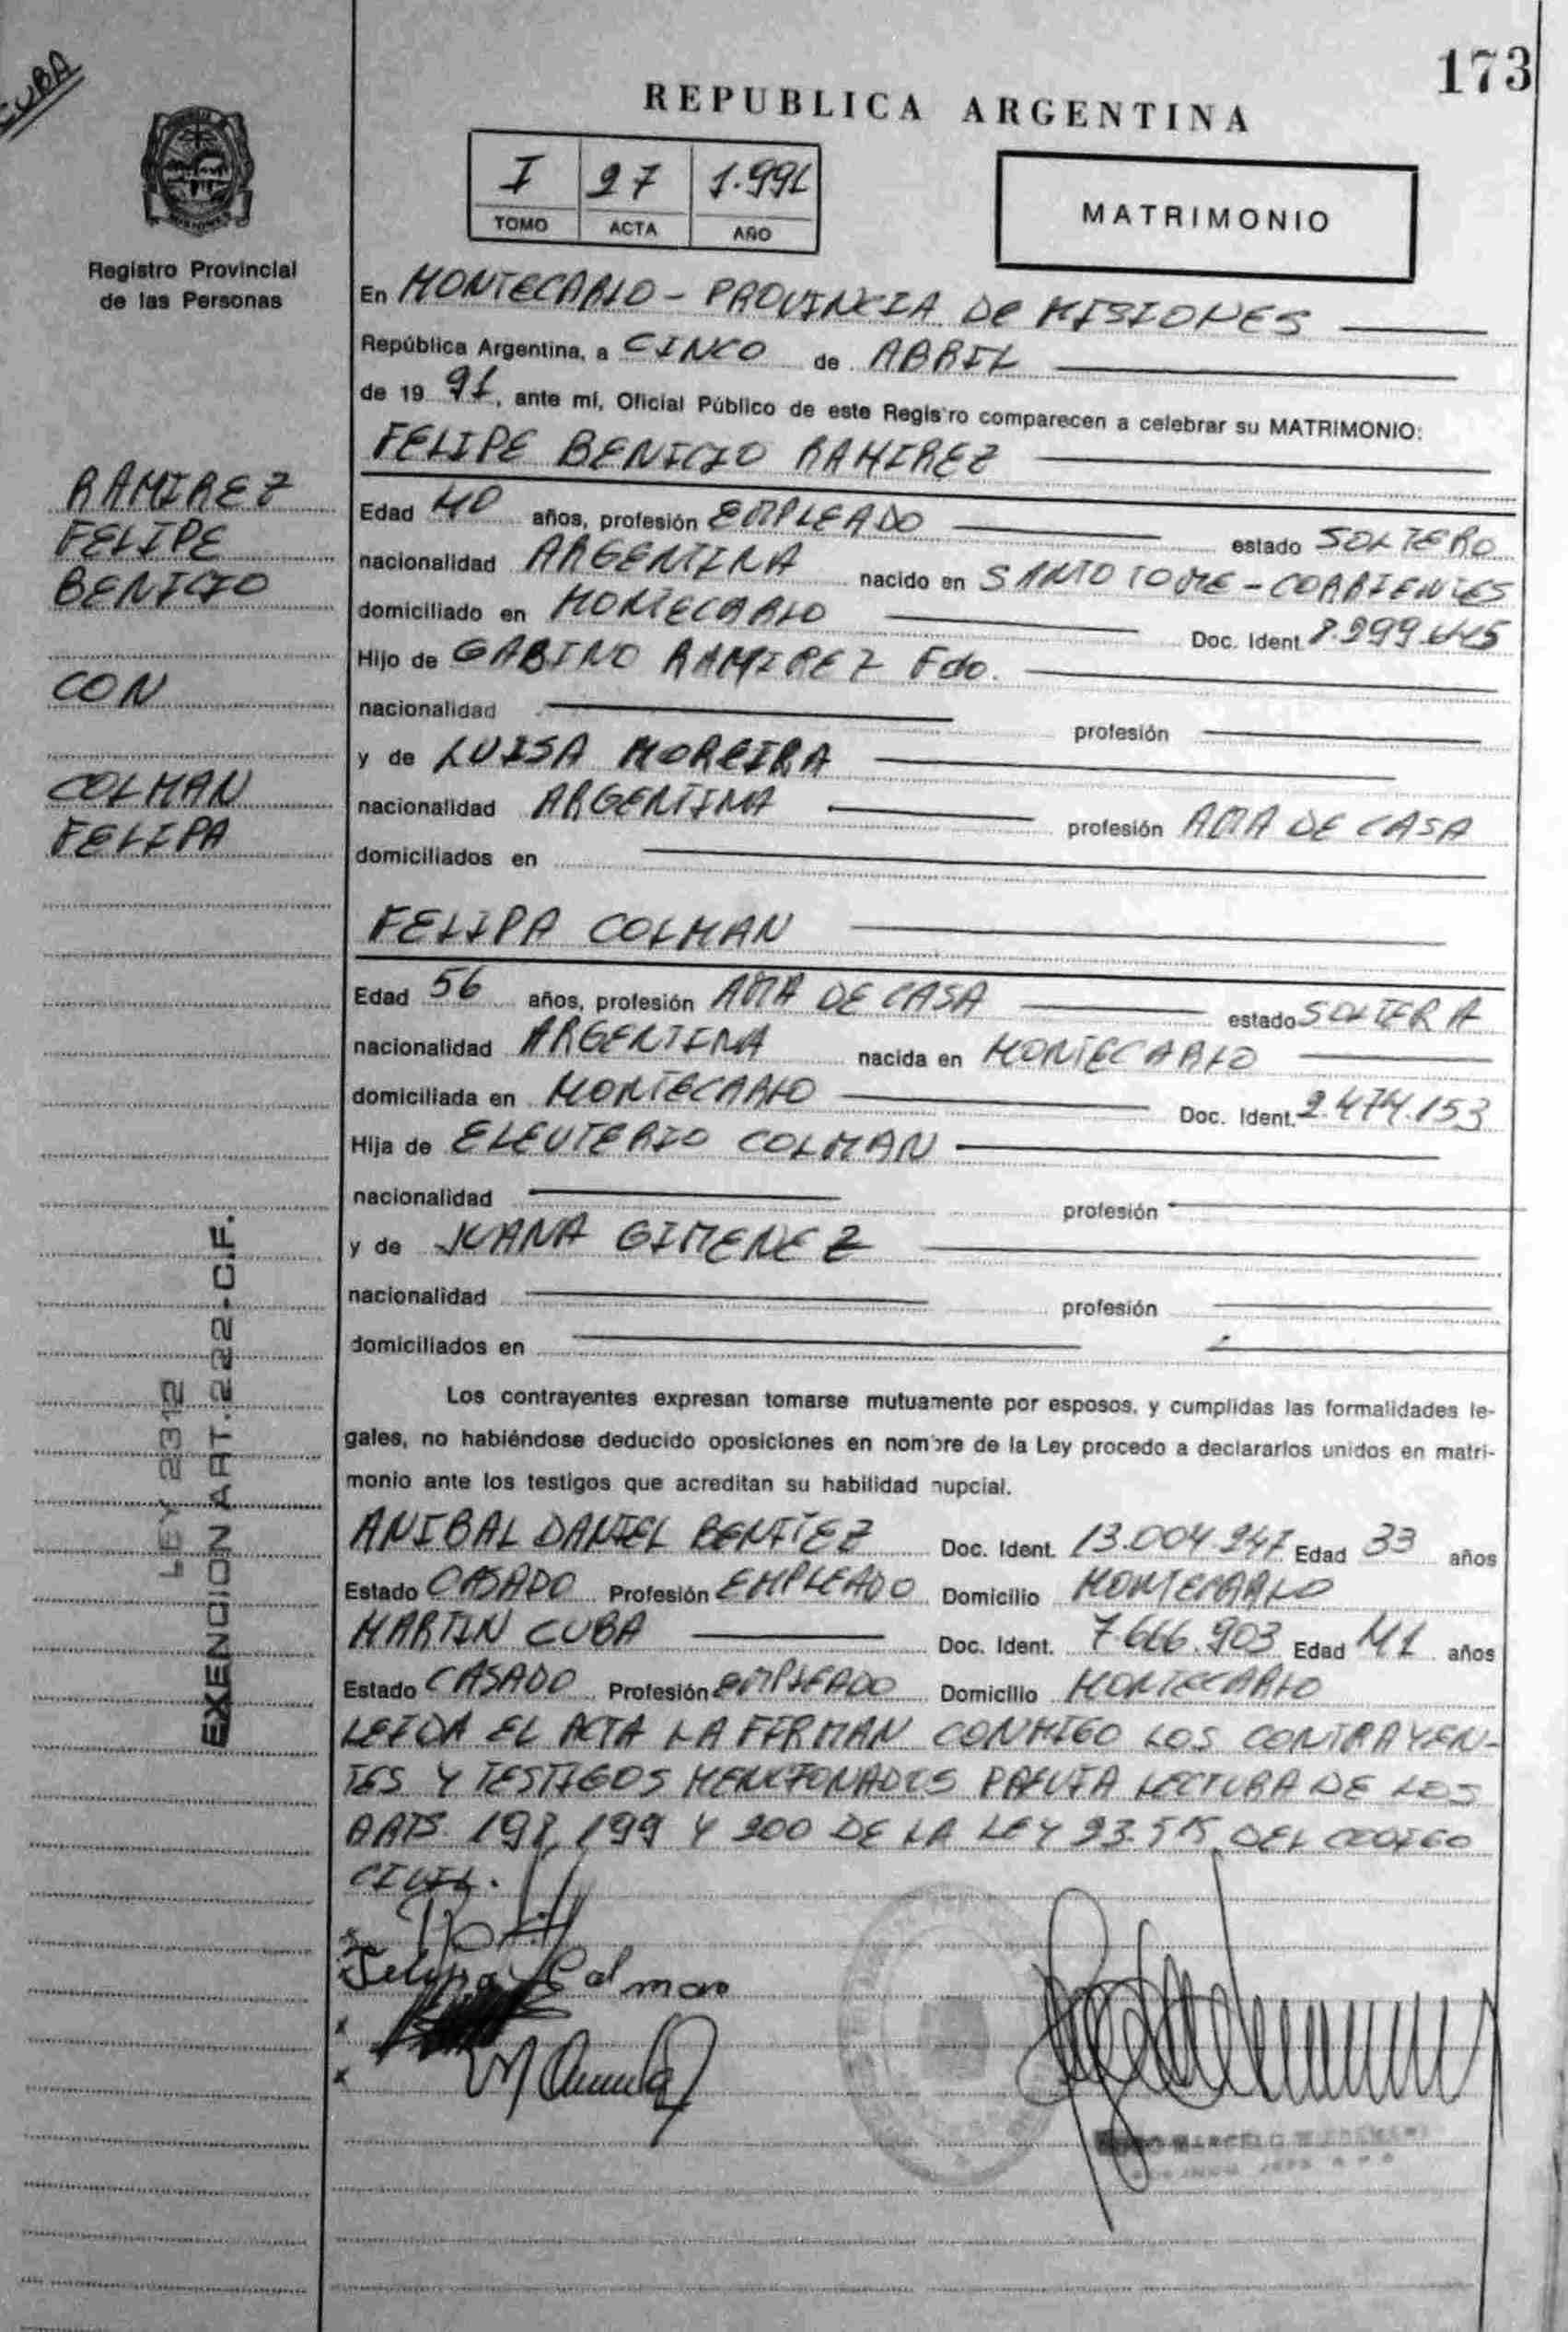 CUBA
173
REPUBLICA ARGENTINA
I 27 1.991
TOMO ACTA AÑO
MATRIMONIO
Registro Provincial
de las Personas
En MONTECARLO - PROVINCIA DE MISIONES
República Argentina, a CINCO de ABRIL
de 19 91, ante mí, Oficial Público de este Registro comparecen a celebrar su MATRIMONIO:
FELIPE BENICIO RAMIREZ
RAMIREZ
FELIPE
BENICIO
CON
COLMAN
FELIPA
Edad 40 años, profesión EMPLEADO estado SOLTERO
nacionalidad ARGENTINA nacido en SANTO TOME - CORRIENTES
domiciliado en MONTECARLO Doc. Ident.
Hijo de GABINO RAMIREZ Fdo.
nacionalidad profesión
y de LUISA MOREIRA
nacionalidad ARGENTINA profesión AMA DE CASA
domiciliados en
FELIPA COLMAN
Edad 56 años, profesión AMA DE CASA estado SOLTERA
nacionalidad ARGENTINA nacida en MONTECARLO
domiciliada en MONTECARLO Doc. Ident. 2.474.153
Hija de ELEUTERIO COLMAN
nacionalidad profesión
y de JUANA GIMENEZ
nacionalidad profesión
domiciliados en
LEY 2312
EXENCION ART. 222 - C.F.
Los contrayentes expresan tomarse mutuamente por esposos, y cumplidas las formalidades le-
gales, no habiéndose deducido oposiciones en nombre de la Ley procedo a declararlos unidos en matri-
monio ante los testigos que acreditan su habilidad nupcial.
ANIBAL DANIEL BENITEZ Doc. Ident. 13.004.247 Edad 33 años
Estado CASADO Profesión EMPLEADO Domicilio MONTECARLO
MARTIN CUBA Doc. Ident. 7.666.903 Edad 41 años
Estado CASADO Profesión EMPLEADO Domicilio MONTECARLO
LEIDA EL ACTA LA FIRMAN CONMIGO LOS CONTRAYEN-
TES Y TESTIGOS MENCIONADOS PREVIA LECTURA DE LOS
ARTS. 198, 199 Y 200 DE LA LEY 23.515 DEL CODIGO
CIVIL.
Felipa Colman